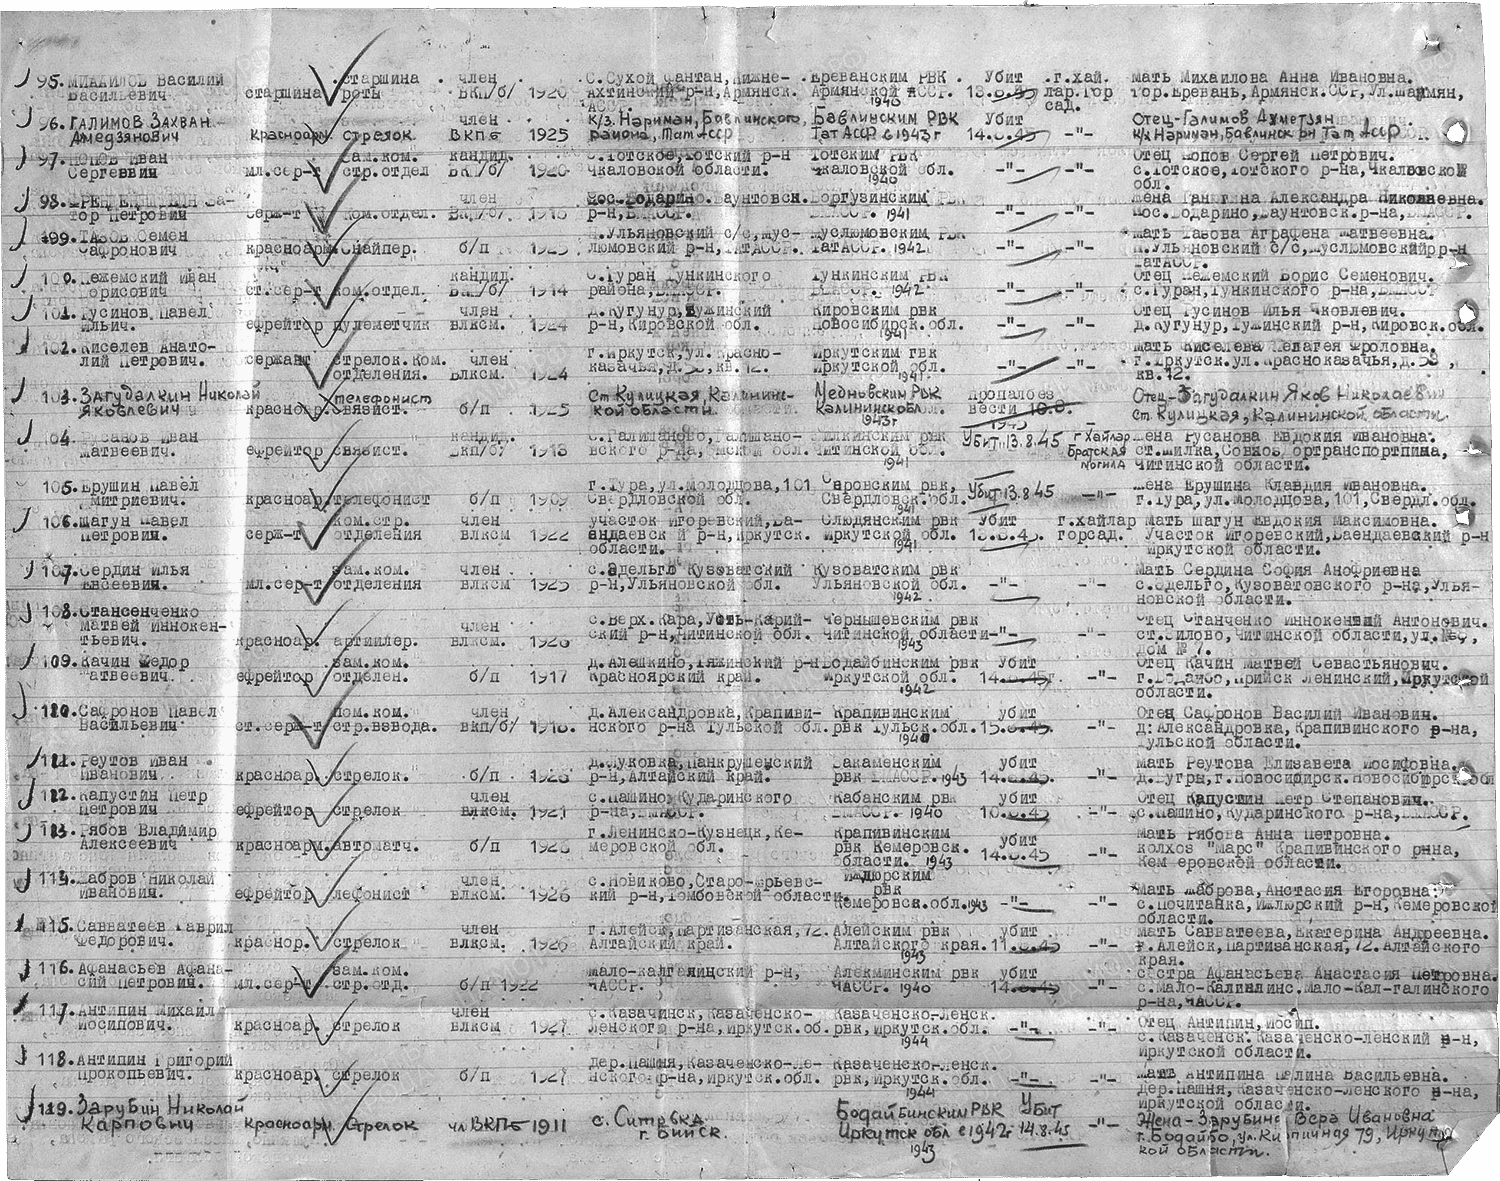 95. Михайлов Василий старшина член С.Сухой Фантан, Нижне- Ереванским РВК Убит г.хай. Мать Михайлова Анна Ивановна.
Васильевич старшина роты ВКП/б/ 1920 Ахтинский р-н, Армянск. Армянской АССР. 13.8.45 лар. Гор Гор. Ереван, Армянск. ССР, Ул.
АССР 1940 сад.
96. ГАЛИМОВ ЗАХВАН член К/з. Нариман, Бавлинского, Бавлинским РВК Убит Отец-Галимов Ахметзян
Амедзянович красноарм. стрелок ВКПб 1925 района, Тат АССР Тат АССР в 1943г 14.8.45 -"- к/з Нариман, Бавлинск рн Тат АССР
97. Попов Иван Зам.ком. кандид. С.Тотское, Тотский р-н Тотским РВК Отец Попов Сергей Петрович.
Сергеевич мл.сер-т стр.отдел ВКП/б/ 1920 Чкаловской области. Чкаловской обл. -"- -"- с.Тотское, Тотского р-на, Чкаловской
1940 обл.
98. член Пос. Бодарино. Баунтовск. Жена Александра Николаевна.
тор Петрович серж-т ком.отдел. ВКП/б/ р-н, 1941 -"- -"- пос. Бодарино, Баунтовск. р-на,
99. Табов Семен Ульяновский с/с, Мус- Муслюмовским РВК Мать Табова Аграфена Матвеевна.
Сафронович красноарм снайпер. б/п люмовский р-н, ТатАССР. ТатАССР. 1942 -"- -"- Ульяновский с/с, Муслюмовский р-н
ТатАССР.
100. Нежемский Иван кандид. С.Туран Тункинского Тункинским РВК Отец Нежемский Борис Семенович.
Борисович ст.сер-т ком.отдел. ВКП/б/ 1914 района, 1942 -"- -"- с.Туран, Тункинского р-на,
101. Русинов Павел член д.Кугунур, Тужинский Кировским РВК Отец Русинов Илья Яковлевич.
Ильич. ефрейтор пулеметчик влксм. 1924 р-н, Кировской обл. Новосибирск. обл. -"- -"- д.Кугунур, Тужинский р-н, Кировск. обл.
1941
102. Киселев Анато- г.Иркутск, ул. Красно- Иркутским гвк Мать Киселева Пелагея Фроловна.
лий Петрович. сержант стрелок. Ком. член казачья, д.58, кв.12. Иркутской обл. -"- -"- г.Иркутск. ул. Красноказачья, д.58,
отделения. влксм. 1924 1941 кв.12.
103. ЗАГУДАЛКИН Николай телефонист Ст Кулицкая, Калинин- Медновским РВК пропалбез Отец-Загудалкин Яков Николаевич
Яковлевич красноар. связист. б/п 1925 кой области Калинин обл. вести 10.8. ст. Кулицкая, Калининской области
1943г 1945
104. Русанов Иван кандид. С.Галишаново, Галишано- Шилкинским рвк Убит. 13.8.45 г Хайлар Жена Русанова Евдокия Ивановна.
Матвеевич. ефрейтор связист. ВКП/б/ 1913 вского р-на, Омской обл. Читинской обл. Братская ст.Шилка, Совхоз
1941 могила Читинской области.
105. Ерушин Павел г.Тура, ул.Молодцова, 101 Серовским рвк, Убит 13.8 45 Жена Ерушина Клавдия Ивановна.
Дмитриевич. красноар. телефонист б/п 1909 Свердловской обл. Свердловск.обл. -"- г.Тура, ул.Молодцова, 101, Свердл.обл.
1941
106. Шагун Павел ком.стр. член участок Игоревский, Ба- Слюдянским рвк Убит г.хайлар Мать Шагун Евдокия Максимовна.
Петрович. серж-т отделения влксм 1922 ендаевск й р-н, Иркутск. Иркутской обл. 13.8.45. горсад. Участок Игоревский, Баендаевский р-н
области. 1941 Иркутской области.
107. Сердин Илья зам.ком. член с.Эдельго Кузоватский Кузоватским рвк Мать Сердина София Анофриевна
Евсеевич. мл.сер-т отделения влксм 1925 р-н, Ульяновской обл. Ульяновской обл. -"- -"- с.Эдельго, Кузоватовского р-на, Улья-
1942. новской области.
108. Стансенченко с.Верх. Кара, Усть-Карий- Чернышевским рвк Отец Станченко Иннокентий Антонович.
Матвей Иннокен- член ский р-н, Читинской обл. Читинской области -"- -"- ст.Зилово, Читинской области, ул.
тьевич. красноар. артиллер. влксм. 1926 1943 дом № 7.
109. Качин Федор зам.ком. д.Алешкино, Тяжинский р-н Бодайбинским рвк Убит Отец Качин Матвей Севастьянович.
Матвеевич. ефрейтор отделен. б/п 1917 Красноярский край. Иркутской обл. 14.8.45г. -"- г.Бодайбо, Прийск Ленинский, Иркутской
1942 области.
110. Сафронов Павел пом.ком. член д.Александровка, Крапиви- Крапивинским убит Отец Сафронов Василий Иванович.
Васильевич ст.серж-т стр.взвода. вкп/б/ 1918. нского р-на Тульской обл. рвк Тульск. обл. 13.8.45. -"- д.Александровка, Крапивинского р-на,
1940 Тульской области.
111. Реутов Иван д.Луковка, Панкрушенский Закаменским убит Мать Реутова Елизавета Иосифовна.
Иванович красноар. стрелок. б/п 1926 р-н, Алтайский край. рвк БМАССР. 1943 14.8.45. -"- д.Бугры, г.Новосибирск. Новосибирск об
112. Капустин Петр член с.Пашино, Кударинского Кабанским рвк убит Отец Капустин Петр Степанович.
Петрович ефрейтор стрелок влксм. 1921 р-на, БМАССР. БМАССР. 1940 10.8.45 -"- с.Пашино, Кударинского р-на, БМАССР.
113. Рябов Владимир г.Ленинско-Кузнецк, Ке- Крапивинским убит Мать Рябова Анна Петровна.
Алексеевич красноарм. автоматч. б/п 1926 меровской обл. рвк Кемеровск. 14.8.45 -"- колхоз "Марс" Крапивинского рнна,
области. 1943 Кем еровской области.
114. Шабров Николай член с.Новиково, Старо-Юрьевс- Ижморским Мать Шаброва, Анстасия Егоровна.
Иванович. ефрейтор лефонист влксм. 1926 кий р-н, Томбовской области. рвк с.Почитанка, Ижморский р-н, Кемеровской
Кемеровск.обл. 1943 -"- -"- области.
115. Савватеев Гаврил член г.Алейск, Партизанская, 72. Алейским рвк убит Мать Савватеева, Екатерина Андреевна.
Федорович. краснор. стрелок влксм. 1926 Алтайский край. Алтайского края. 11.8.45 -"- г.Алейск, Партизанская, 72. Алтайского
1943 края.
116. Афанасьев Афана- зам.ком. мало-калганицский р-н, Алекминским рвк убит сестра Афанасьева Анастасия Петровна.
сий Петрович. мл.сер-т стр.отд. б/п 1922 ЧАССР. ЧАССР. 1940 14.8.45 -"- с.Мало-Калинлинс. Мало-Кал-галинского
р-на, ЧАССР.
117. Антипин Михаил член с.Казачинск, Казаченско- Казаченско-Ленск. Отец Антипин, Иосип.
Иосипович. красноар. стрелок влксм 1927 Ленского р-на, Иркутск.об. рвк, Иркутск. обл. -"- -"- с.Казаченск. Казаченско-ленский р-н,
1944 Иркутской области.
118. Антипин Григорий дер.Пашня, Казаченско-Ле- Казаченско-Ленск. Мать Антипина Васильевна.
Прокопьевич. красноар. стрелок б/п 1927 нского р-на, Иркутск.обл. рвк, Иркутск. обл. -"- -"- дер.Пашня, Казаченско-Ленского р-на,
1944 Иркутской области.
119. Зарубин Николай Бодайбинским РВК Убит Жена-Зарубина Вера Ивановна
Карпович Красноарм. Стрелок чл ВКПб 1911 с. Ситовка Иркутск обл в 1942г 14.8.45 -"- г.Бодайбо, ул.Кирпичная 79, Иркутс
г. Бийск. 1943 кой области.